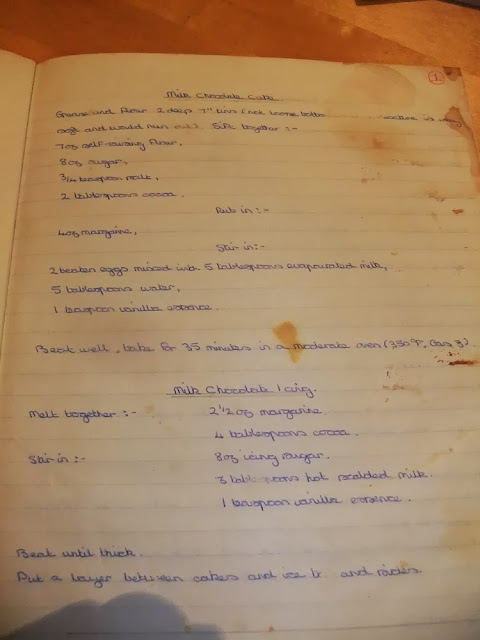 1
Milk Chocolate Cake
Grease and flour 2 deep 7" tins (not loose bottom is very
soft and would run out). Sift together :-
7oz self-raising flour,
8oz sugar,
3/4 teaspoon salt,
2 tablespoons cocoa.
Rub in :-
4oz margarine,
Stir in :-
2 beaten eggs mixed with 5 tablespoons evaporated milk,
5 tablespoons water,
1 teaspoon vanilla essence.
Beat well, bake for 35 minutes in a moderate oven (350°F, Gas 3).
Milk Chocolate Icing.
Melt together :- 2 1/2 oz margarine.
4 tablespoons cocoa.
Stir in :- 8oz icing sugar.
3 tablespoons hot scalded milk.
1 teaspoon vanilla essence.
Beat until thick.
Put a layer between cakes and ice and sides.